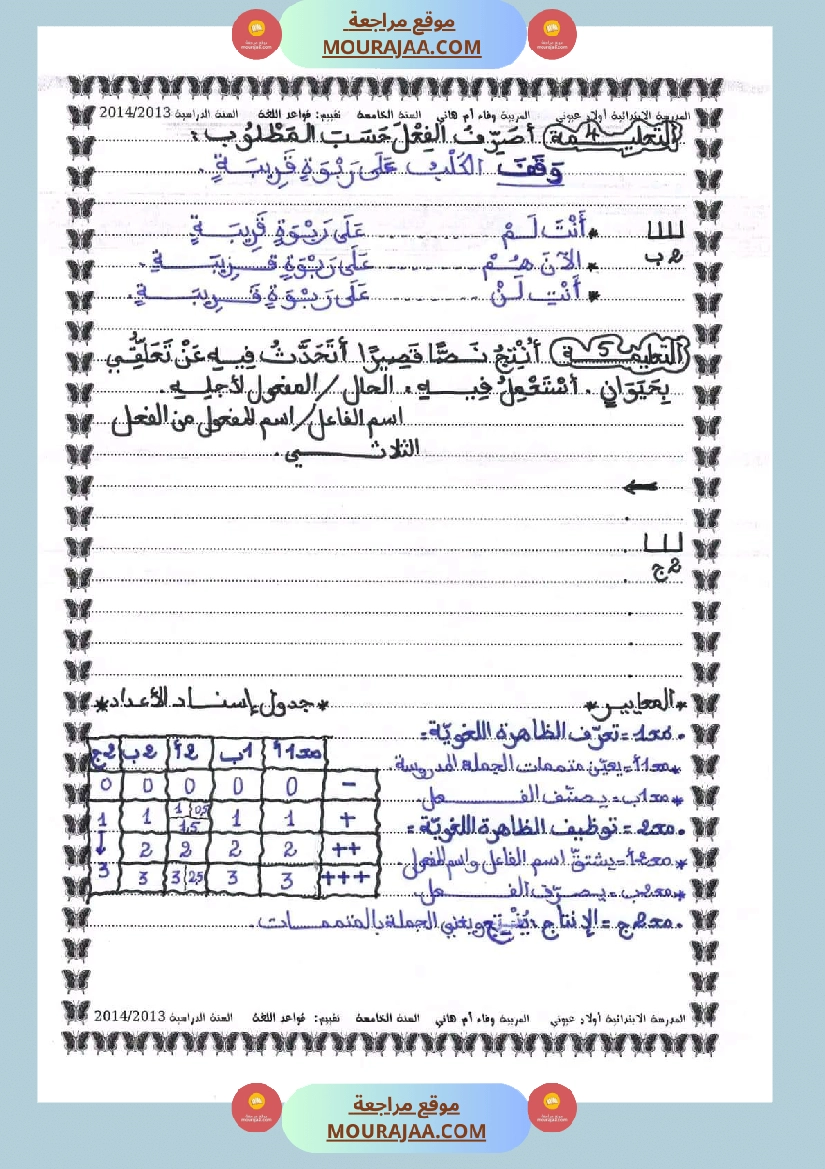 موقع مراجعة
MOURAJAA.COM
المدرسة الابتدائية أولاد عيوني المربية وفاء أم هاني السنة الخامسة تقييم: قواعد اللغة السنة الدراسية 2014/2013
التعليمة 4 أُصَرِّفُ الفِعْلَ حَسَبَ الـمَطْلُوب :
وَقَفَ الكَلْبُ عَلَى رَبْوَةٍ قَرِيبَةٍ .
* أَنْتَ لَمْ .......... عَلَى رَبْوَةٍ قَرِيبَةٍ
2 ب
* الآنَ هُمْ .......... عَلَى رَبْوَةٍ قَرِيبَةٍ .
* أَنْتِ لَنْ .......... عَلَى رَبْوَةٍ قَرِيبَةٍ .
التعليمة 5 أُنْتِجُ نَصًّا قَصِيرًا أَتَحَدَّثُ فِيهِ عَنْ تَعَلُّقِي
بِحَيَوَانٍ . أَسْتَعْمِلُ فِيهِ : الحال / المفعول لأجله .
اسم الفاعل / اسم المفعول من الفعل
الثلاثي .
2 ج
* المعايير *
* جدول إسناد الأعداد *
. مع1 = تعرّف الظاهرة اللغويّة =
* مع1أ = يعيّن متممات الجملة المدروسة .
* مع1ب = يصنّف الفعل .
. مع2 = توظيف الظاهرة اللغويّة =
* مع2أ = يشتقّ اسم الفاعل واسم المفعول
* مع2ب = يصرّف الفعل .
. مع2ج = الإنتاج : يُنْتِج ويغني الجملة بالمتممات .
مع1أ 1ب 2أ 2ب 2ج
- 0 0 0 0 0
+ 1 1 1 0,5 1,5 1 1
++ 2 2 2 2
+++ 3 3 3 2,5 3 3
المدرسة الابتدائية أولاد عيوني المربية وفاء أم هاني السنة الخامسة تقييم: قواعد اللغة السنة الدراسية 2014/2013
موقع مراجعة
MOURAJAA.COM